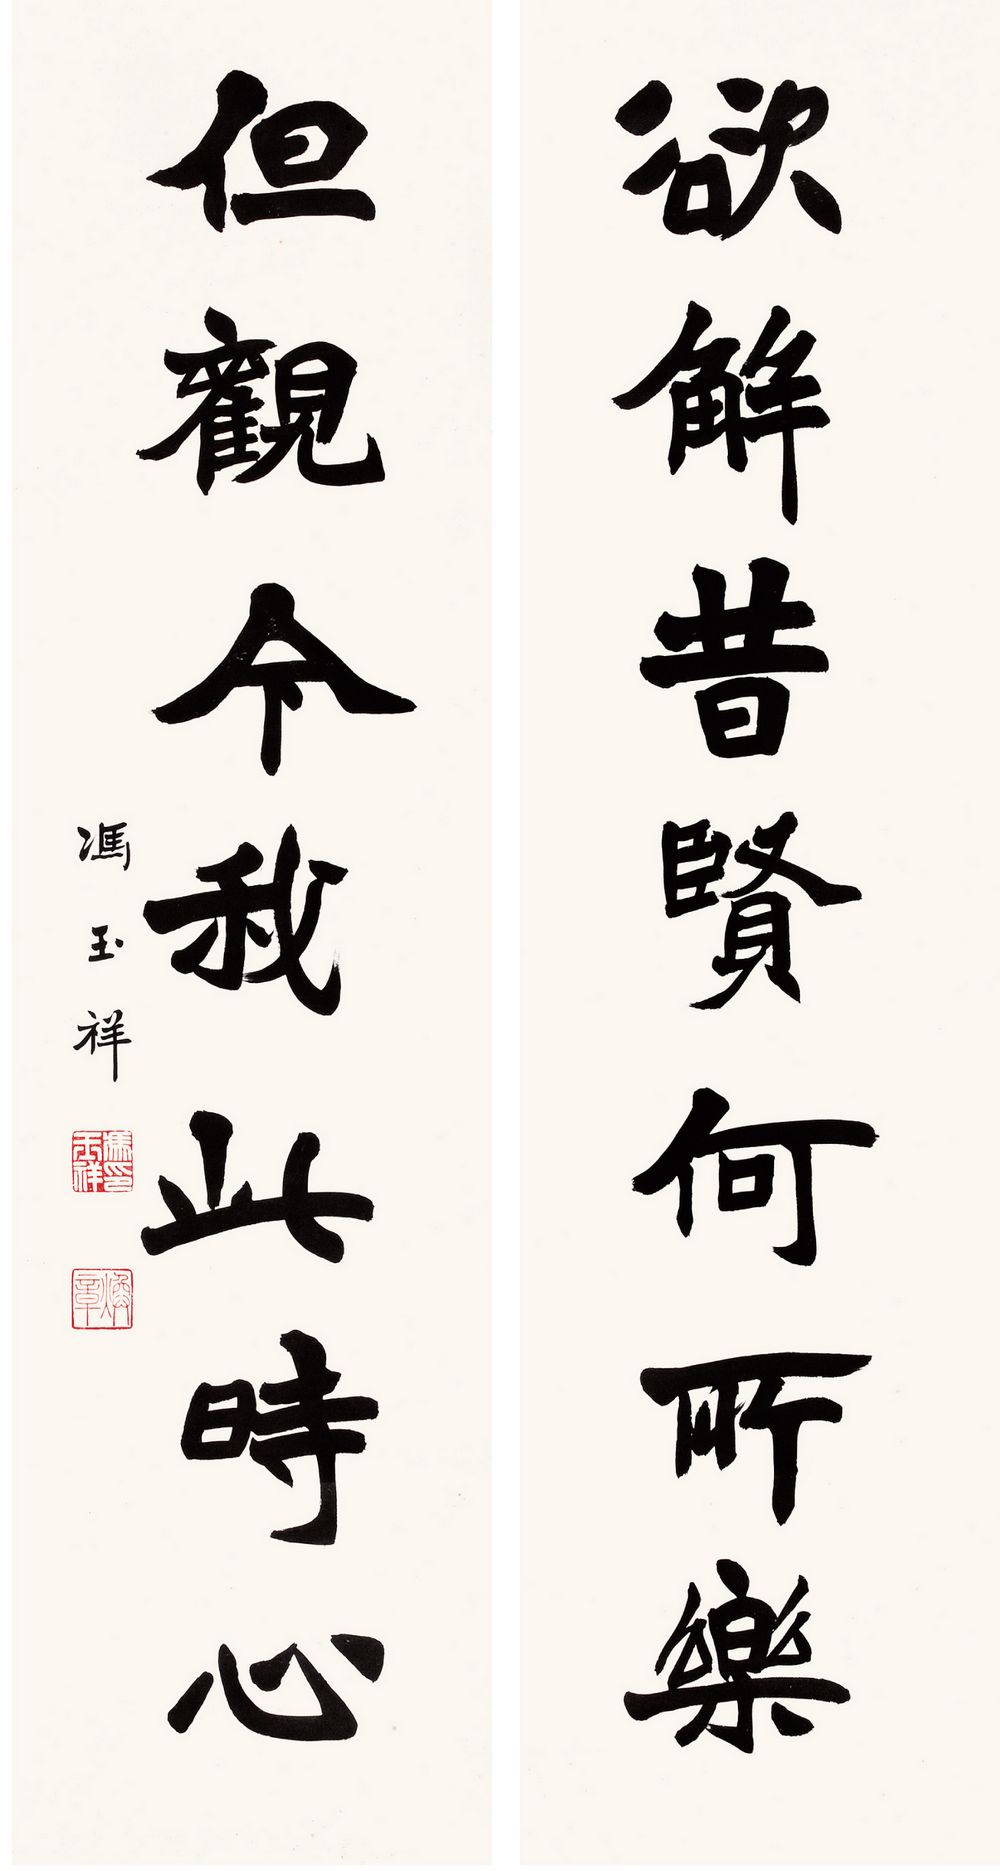 欲解昔賢何所樂
但觀今我此時心
馮玉祥
馮印玉祥
煥章